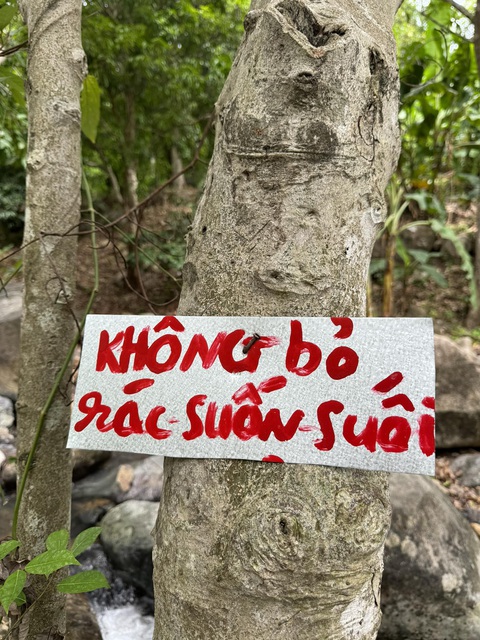 KHÔNG bỏ
rác SUốN SUối